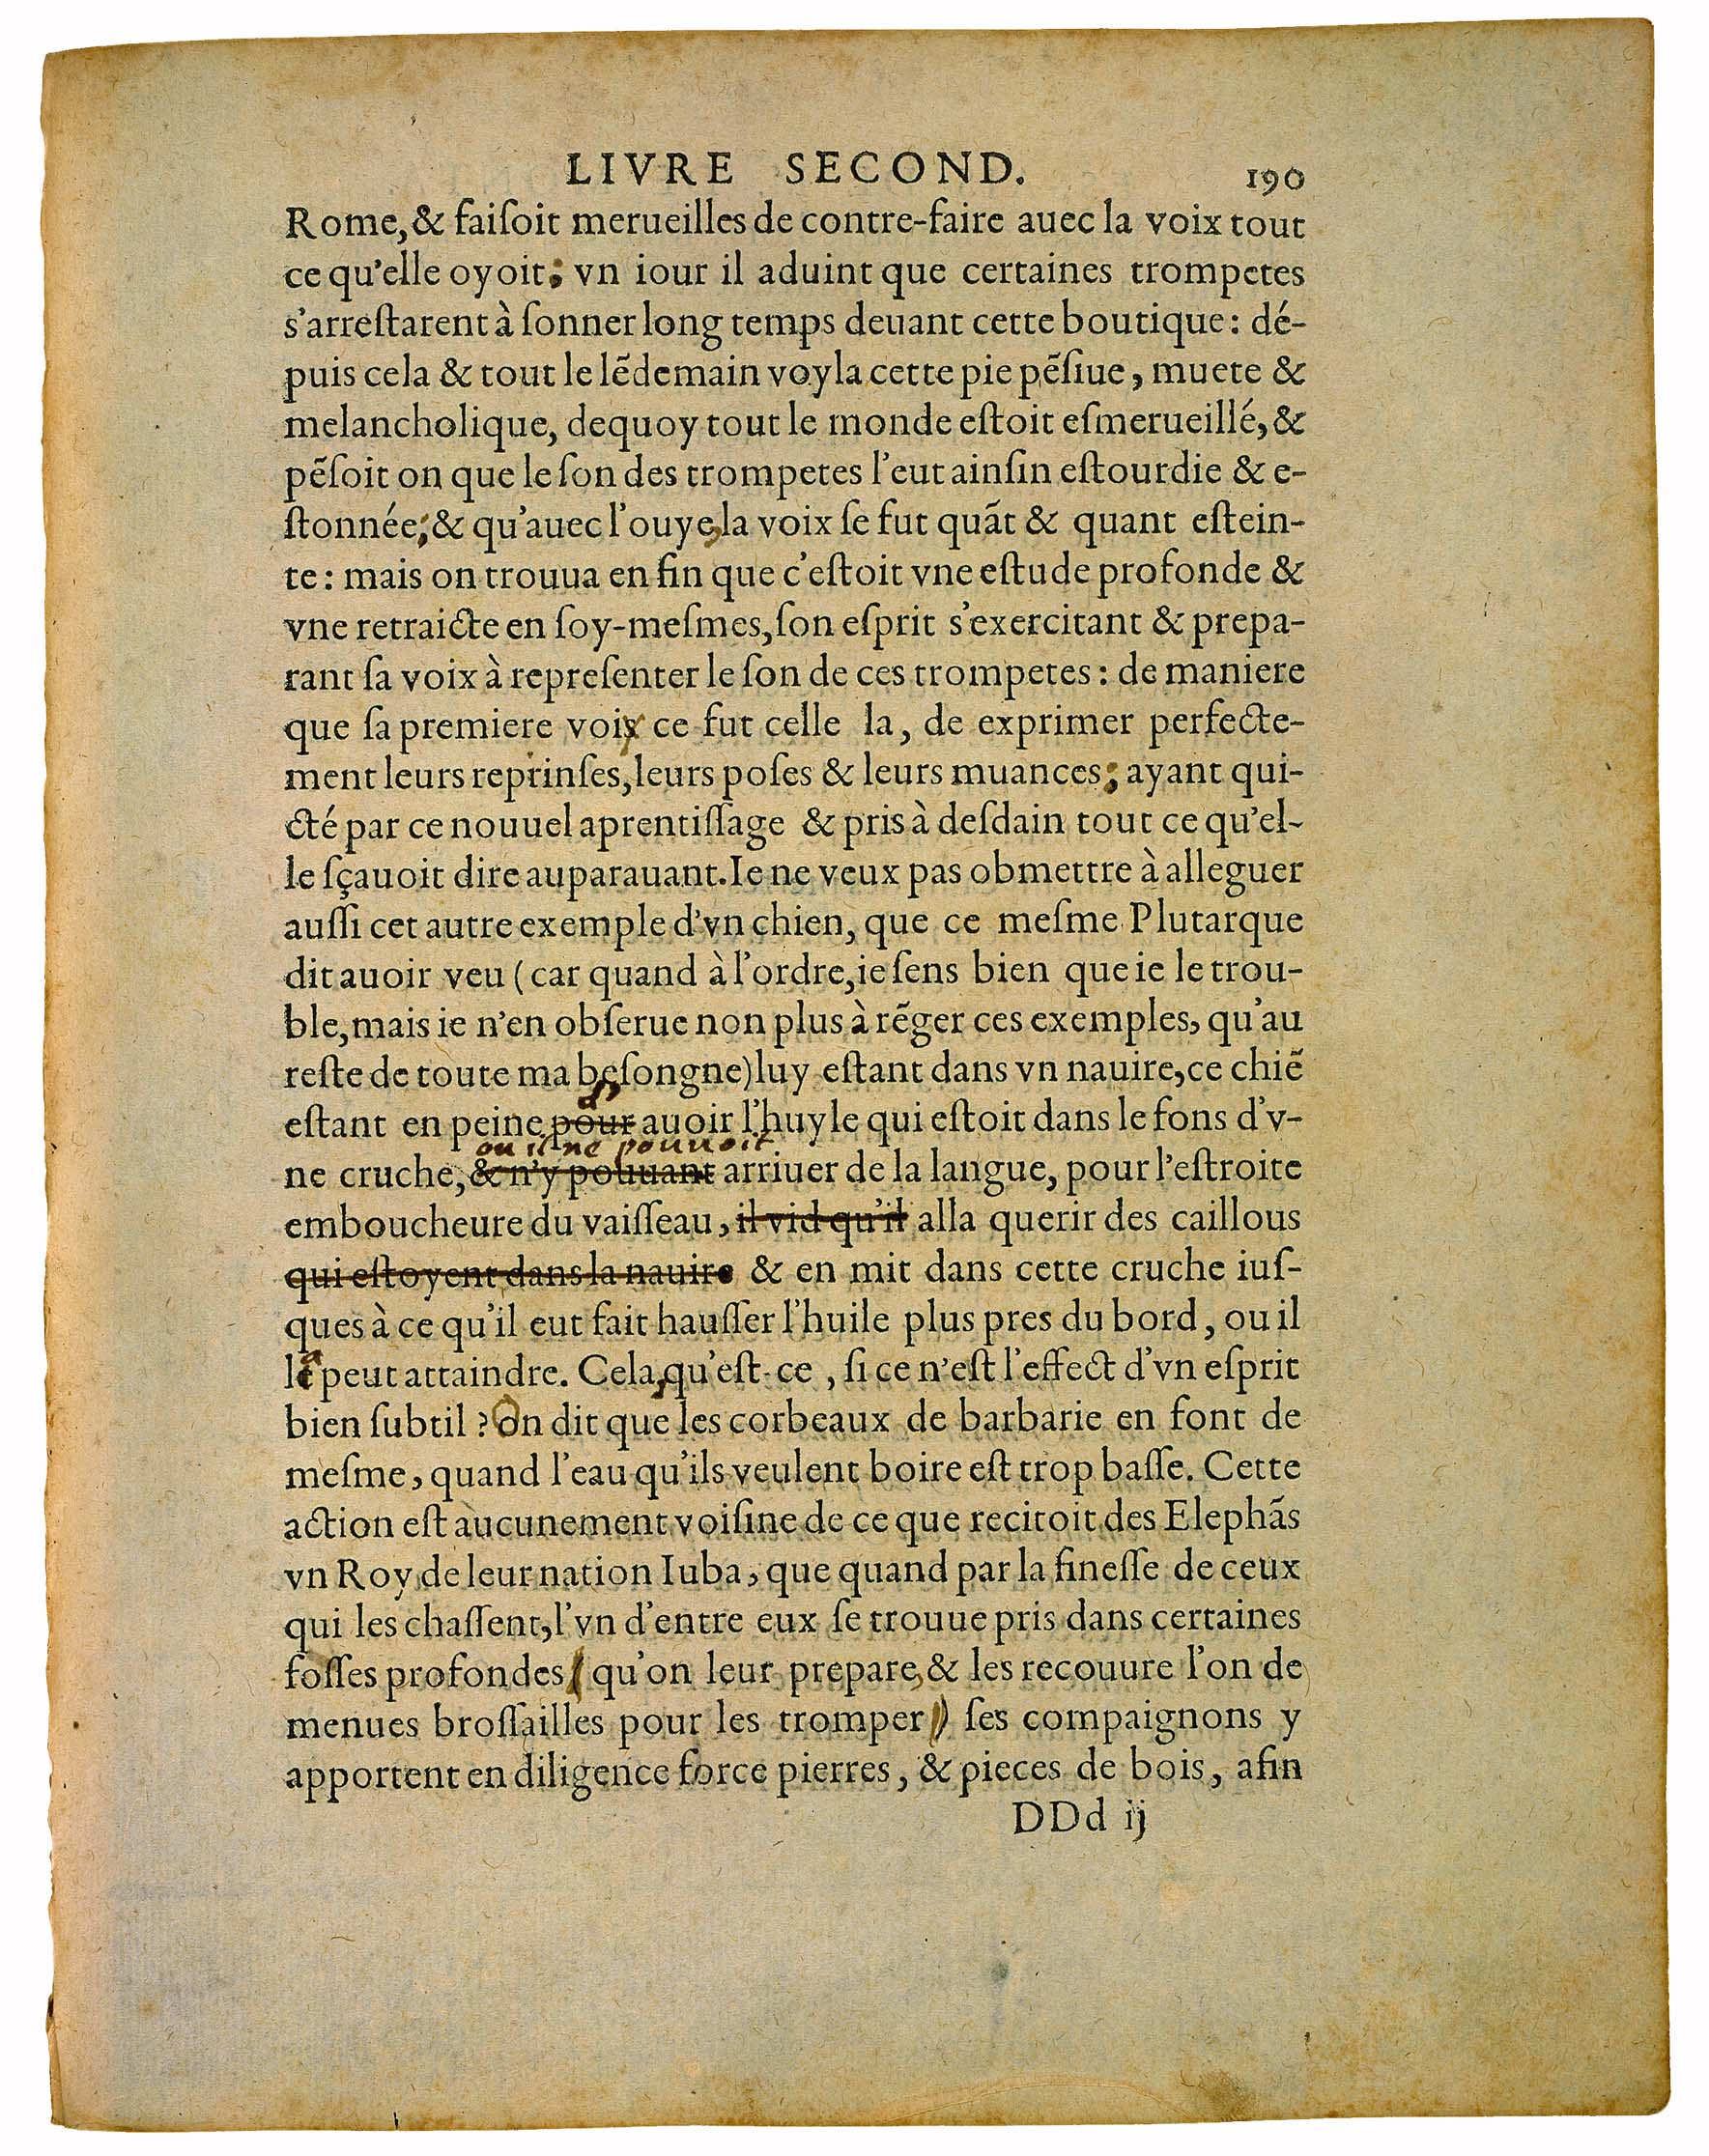 LIVRE SECOND. 190
Rome, & faiſoit merueilles de contre-faire auec la voix tout
ce qu'elle oyoit; vn iour il aduint que certaines trompetes
s'arreſtarent à ſonner long temps deuant cette boutique: dé-
puis cela & tout le lẽdemain voyla cette pie pẽſiue, muete &
melancholique, dequoy tout le monde eſtoit eſmerueillé, &
pẽſoit on que le ſon des trompetes l'eut ainſin eſtourdie & e-
ſtonnée; & qu'auec l'ouye, la voix ſe fut quãt & quant eſtein-
te: mais on trouua en fin que c'eſtoit vne eſtude profonde &
vne retraicte en ſoy-meſmes, ſon eſprit s'exercitant & prepa-
rant ſa voix à repreſenter le ſon de ces trompetes: de maniere
que ſa premiere voix ce fut celle la, de exprimer perfecte-
ment leurs reprinſes, leurs poſes & leurs muances; ayant qui-
cté par ce nouuel aprentiſſage & pris à deſdain tout ce qu'el-
le ſçauoit dire auparauant. Ie ne veux pas obmettre à alleguer
auſſi cet autre exemple d'vn chien, que ce meſme Plutarque
dit auoir veu (car quand à l'ordre, ie ſens bien que ie le trou-
ble, mais ie n'en obſerue non plus à rẽger ces exemples, qu'au
reſte de toute ma beſongne) luy eſtant dans vn nauire, ce chiẽ
d'
eſtant en peine pour auoir l'huyle qui eſtoit dans le fons d'v-
ou il ne pouuoit
ne cruche, & n'y pouuant arriuer de la langue, pour l'eſtroite
emboucheure du vaiſſeau, il vid qu'il alla querir des caillous
qui eſtoyent dans la nauire & en mit dans cette cruche iuſ-
ques à ce qu'il eut fait hauſſer l'huile plus pres du bord, ou il
la peut attaindre. Cela, qu'eſt-ce, ſi ce n'eſt l'effect d'vn eſprit
bien ſubtil? On dit que les corbeaux de barbarie en font de
meſme, quand l'eau qu'ils veulent boire eſt trop baſſe. Cette
action eſt aucunement voiſine de ce que recitoit des Elephãs
vn Roy de leur nation Iuba, que quand par la fineſſe de ceux
qui les chaſſent, l'vn d'entre eux ſe trouue pris dans certaines
foſſes profondes ( qu'on leur prepare, & les recouure l'on de
menues broſſailles pour les tromper ) ſes compaignons y
apportent en diligence force pierres, & pieces de bois, afin
DDd ij